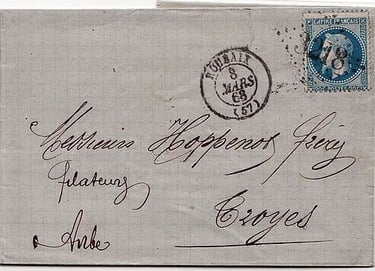 EMPIRE FRANÇAIS
3218
ROUBAIX
8
MARS
68
(57)
Messieurs Hoppenot frères
filateurs
Troyes
Aube